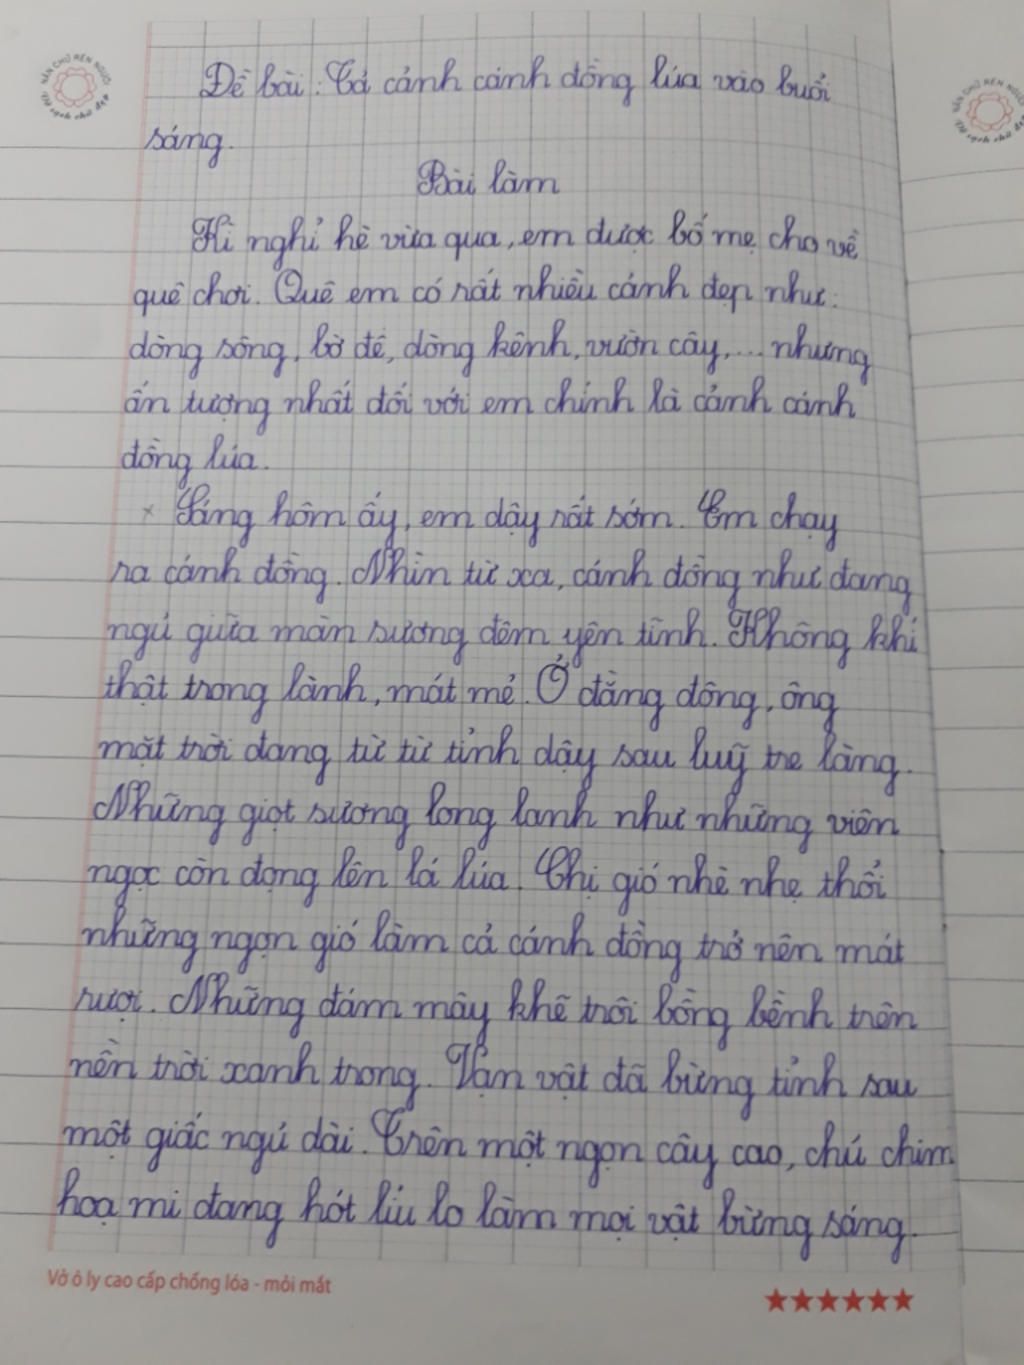 NẮN CHỮ RÈN NGƯỜI
Vở sạch chữ đẹp
Đề bài: Tả cảnh cánh đồng lúa vào buổi
sáng.
Bài làm
Kì nghỉ hè vừa qua, em được bố mẹ cho về
quê chơi. Quê em có rất nhiều cảnh đẹp như:
dòng sông, bờ đê, dòng kênh, vườn cây,... nhưng
ấn tượng nhất đối với em chính là cảnh cánh
đồng lúa.
× Sáng hôm ấy, em dậy rất sớm. Em chạy
ra cánh đồng. Nhìn từ xa, cánh đồng như đang
ngủ giữa màn sương đêm yên tĩnh. Không khí
thật trong lành, mát mẻ. Ở đằng đông, ông
mặt trời đang từ từ tỉnh dậy sau luỹ tre làng.
Những giọt sương long lanh như những viên
ngọc còn đọng lên lá lúa. Chị gió nhè nhẹ thổi
những ngọn gió làm cả cánh đồng trở nên mát
rượi. Những đám mây khẽ trôi bồng bềnh trên
nền trời xanh trong. Vạn vật đã bừng tỉnh sau
một giấc ngủ dài. Trên một ngọn cây cao, chú chim
hoạ mi đang hót líu lo làm mọi vật bừng sáng.
Vở ô ly cao cấp chống lóa - mỏi mắt
NẮN CHỮ RÈN NGƯỜI
Vở sạch chữ đẹp